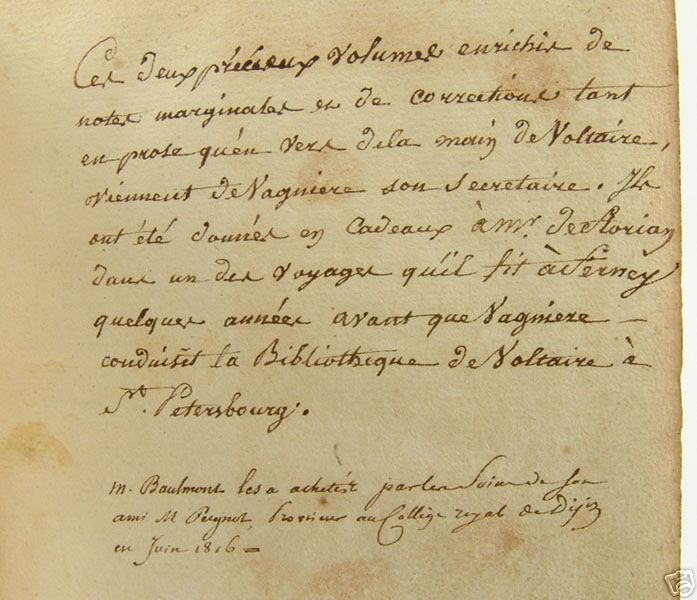 Ces deux précieux volumes enrichis de
notes marginales et de corrections tant
en prose qu'en vers de la main de Voltaire,
viennent de Vagniere son Secretaire. Ils
ont été donnés en Cadeaux à Mr. de Florian
dans un des voyages qu'il fit à Ferney
quelques années avant que Vagniere
conduisit la Bibliotheque de Voltaire à
St. Petersbourg.
M. Baulmont les a achetés par les Soins de son
ami M Peignot, Proviseur au College royal de Dijon
en Juin 1816